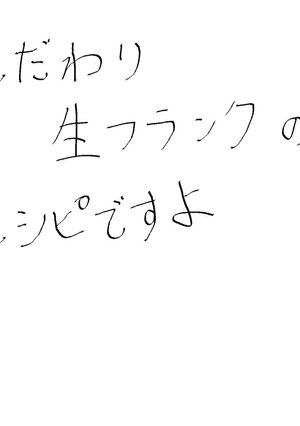 だわり
生フランクの
シピですよ